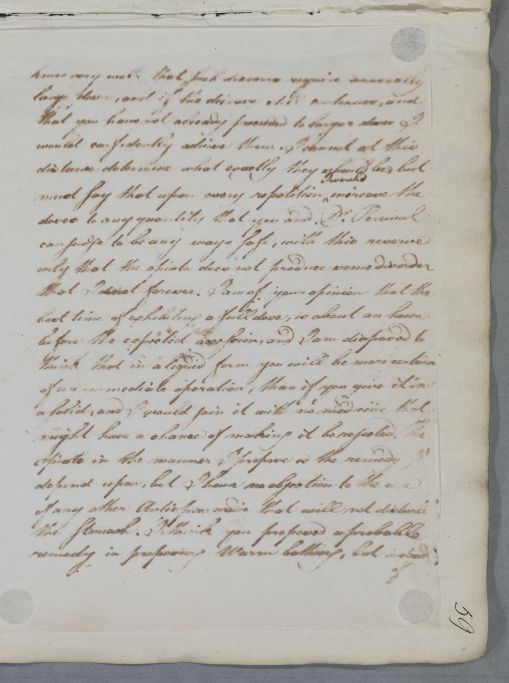 know very well that such diseases require unusually
large doses, and if the disease still continues, and
that you have not already proceeded to larger doses I
would confidently advise them. I cannot at this
distance determine what exactly they should be but
must say that upon every repetition I would increase the
doses to any quantity that you and Dr. Percival
can judge to be any ways safe, with this reserve
only that the opiate does not produce some disorder
that I do not foresee. I am of your opinion that the
best time of exhibiting a full dose, is about an hour
before the expected accession, and I am disposed to
think that in a liquid form you will be more certain
of an immediate operation, than if you give it in
a solid, and I would join it with no medicine that
might have a chance of making it be rejected. The
opiate in the manner I propose is the remedy I
depend upon, but I have no objection to the use
of any other Antispasmodic that will not disturb
the Stomach. I think you proposed a probable
remedy in proposing Warm bathing, but instead
of
59